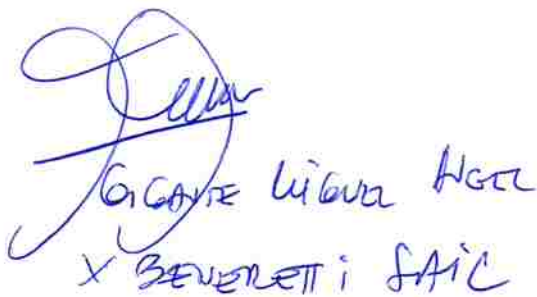 GIGANTE MIGUEL ANGEL
X BENERETTI SAIC